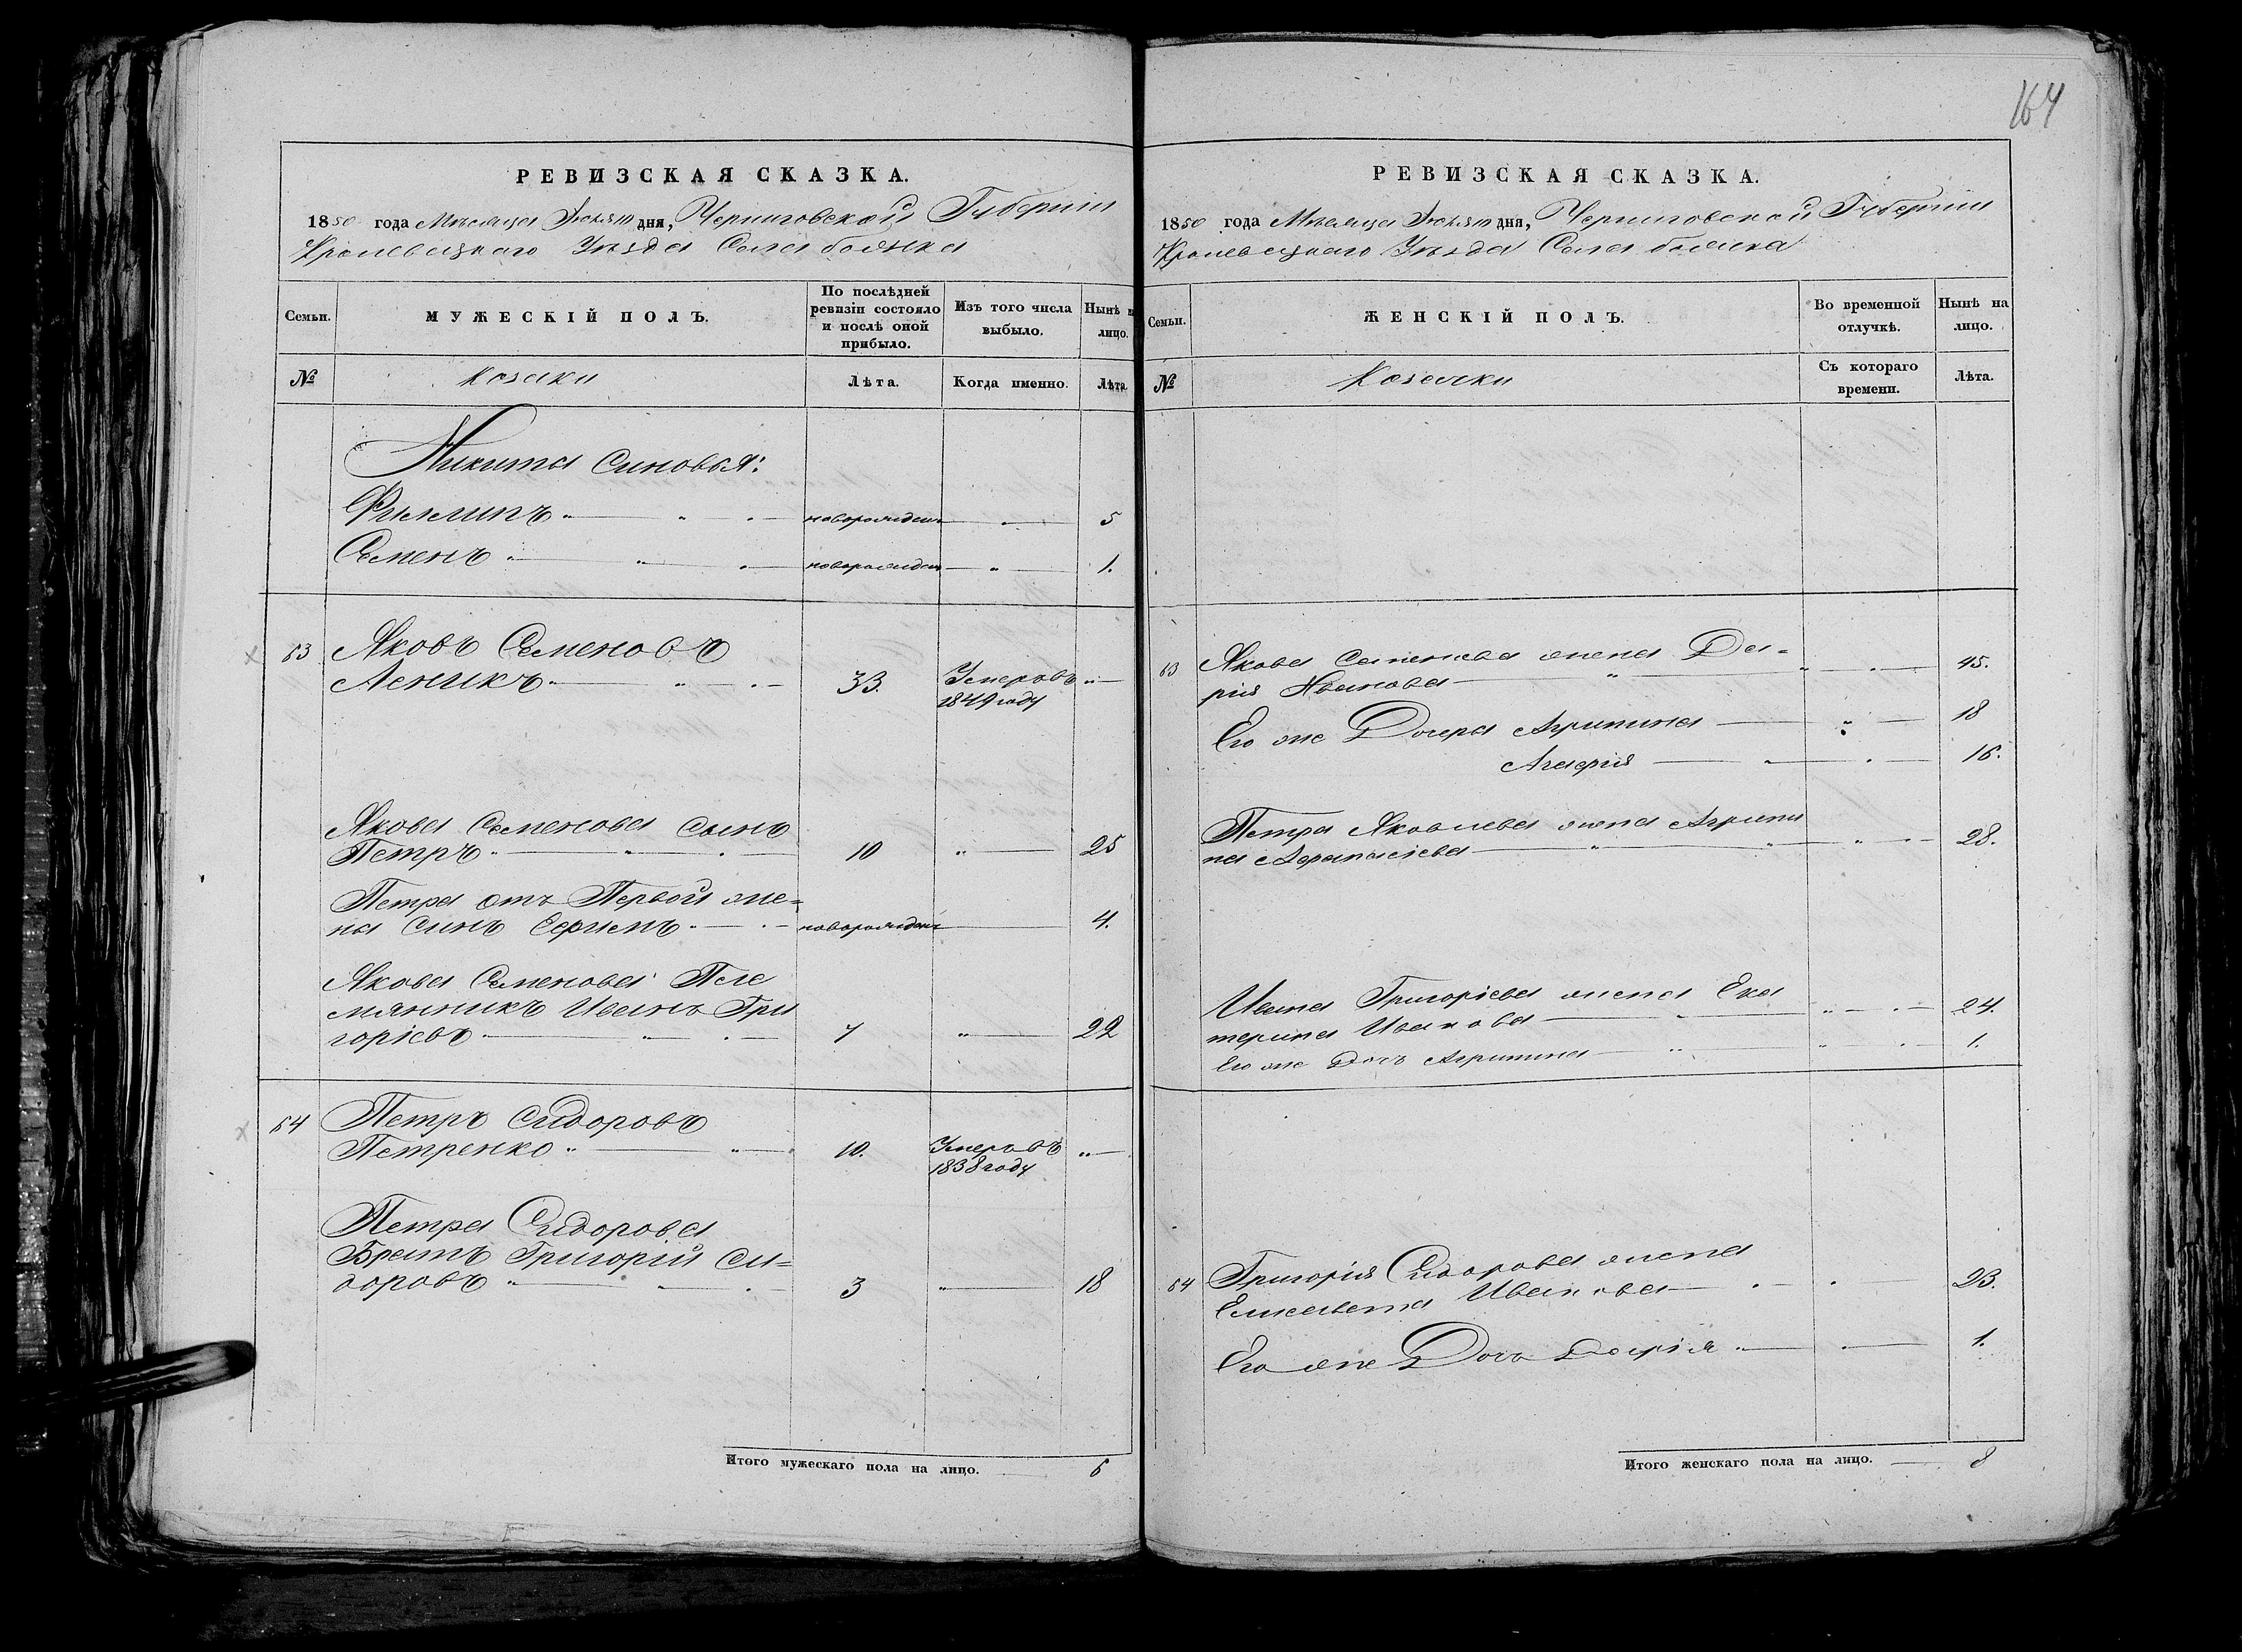 164
РЕВИЗСКАЯ СКАЗКА.
1850 года Мѣсяца дня, Черниговской Губерніи
Кролевецкаго Уѣзда Села
Семьи.
МУЖЕСКІЙ ПОЛЪ.
По послѣдней ревизіи состояло и послѣ оной прибыло.
Изъ того числа выбыло.
Нынѣ н лицо.
№
Козаки
Лѣта.
Когда именно.
Лѣта
Никита Синовья:
Филипъ новорожден 5
Семенъ новорожден 1.
63 Яковъ Семеновъ
Леникъ 33. Умеръ въ
1849 году
Якова Семенова Сынъ
Петръ 10 25
Петра отъ Первой же=
на Синъ Ефимъ новорожден 4.
Якова Семенова Пле
мянникъ Иванъ Гри
горіевъ 7 22
64 Петръ Сидоровъ
Петренко 10. Умеръ въ
1838 году
Петра Сидорова
Братъ Григорій Си=
доровъ 3 18
Итого мужескаго пола на лицо. 6
РЕВИЗСКАЯ СКАЗКА.
1850 года Мѣсяца дня, Черниговской Губерніи
Кролевецкаго Уѣзда Села
Семьи.
ЖЕНСКІЙ ПОЛЪ.
Во временной отлучкѣ.
Нынѣ на лицо.
№
Козачки
Съ котораго времени.
Лѣта.
63 Якова Семенова жена Да=
рия Иванова 45.
Его же Дочера Агрипина 18
16.
Петра Яковлева жена Агрипи
на Афанасіева 28.
Ивана Григоріева жена Ека
терина Иванова 24.
Его же Дочъ Агрипина 1.
64 Григорія Сидорова жена
Елисавета Иванова 23.
Его же Дочъ 1.
Итого женскаго пола на лицо. 8